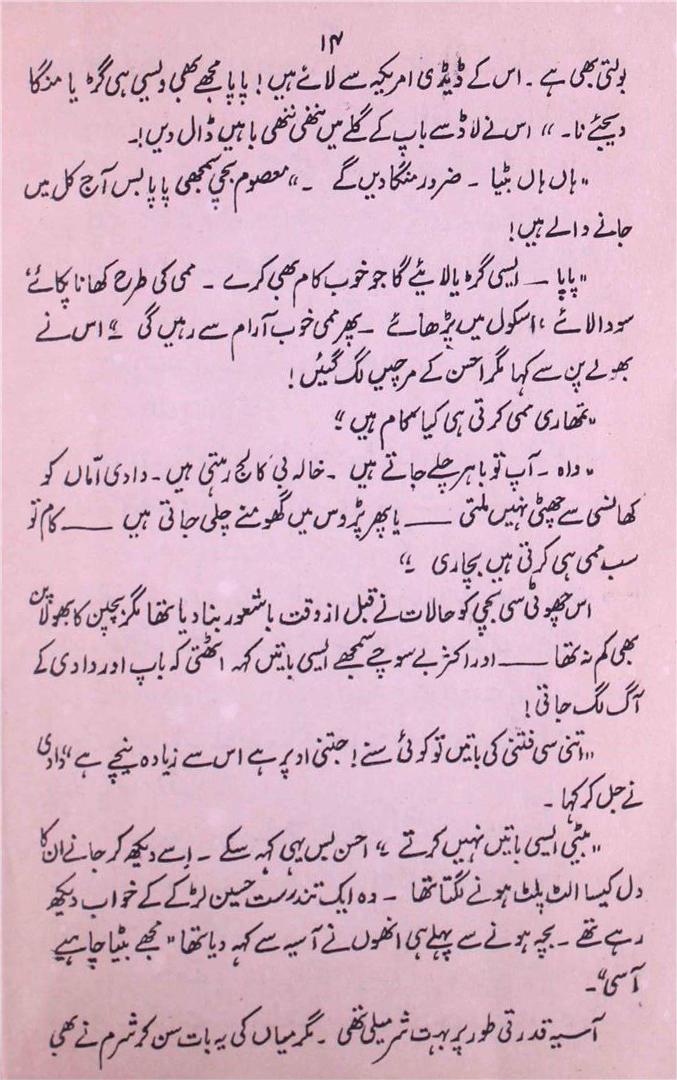 ۱۴
بولتی بھی ہے ۔ اس کے ڈیڈی امریکہ سے لائے ہیں ! پاپا مجھے بھی ویسی ہی گڑیا منگا
دیجئے نا ۔ ‘‘ اس نے لاڈ سے باپ کے گلے میں ننھی ننھی باہیں ڈال دیں !۔
’’ ہاں ہاں بٹیا ۔ ضرور منگا دیں گے ۔ ‘‘ معصوم بچی سمجھی پاپا بس آج کل میں
جانے والے ہیں !
’’ پاپا ـــ ایسی گڑیا لایئے گا جو خوب کام بھی کرے ۔ ممی کی طرح کھانا پکائے ،
سودا لائے ، اسکول میں پڑھائے ۔ پھر ممی خوب آرام سے رہیں گی ۔ ‘‘ اس نے
بھولے پن سے کہا مگر احسن کے مرچیں لگ گئیں !
’’ تمھاری ممی کرتی ہی کیا کام ہیں ‘‘
’’ واہ ۔ آپ تو باہر چلے جاتے ہیں ۔ خالہ بی کالج رہتی ہیں ۔ دادی امّاں کو
کھانسی سے چھٹی نہیں ملتی ـــــ یا پھر پڑوس میں گھومنے چلی جاتی ہیں ـــــ کام تو
سب ممی ہی کرتی ہیں بچاری ۔ ‘‘
اس چھوٹی سی بچی کو حالات نے قبل از وقت باشعور بنا دیا تھا مگر بچپن کا بھولا پن
بھی کم نہ تھا ـــــ اور اکثر بے سوچے سمجھے ایسی باتیں کہہ اٹھتی کہ باپ اور دادی کے
آگ لگ جاتی !
’’ اتنی سی فتنی کی باتیں تو کوئی سنے ! جتنی اوپر ہے اس سے زیادہ نیچے ہے ‘‘ دادی
نے جل کر کہا ۔
’’ بیٹی ایسی باتیں نہیں کرتے ‘‘ احسن بس یہی کہہ سکے ۔ اسے دیکھ کر جانے ان کا
دل کیسا الٹ پلٹ ہونے لگتا تھا ۔ وہ ایک تندرست حسین لڑکے کے خواب دیکھ
رہے تھے ۔ بچہ ہونے سے پہلے ہی انھوں نے آسیہ سے کہہ دیا تھا ’’ مجھے بیٹا چاہیے
آسی ‘‘ ۔
آسیہ قدرتی طور پر بہت شرمیلی تھی ۔ مگر میاں کی یہ بات سن کر شرم نے بھی